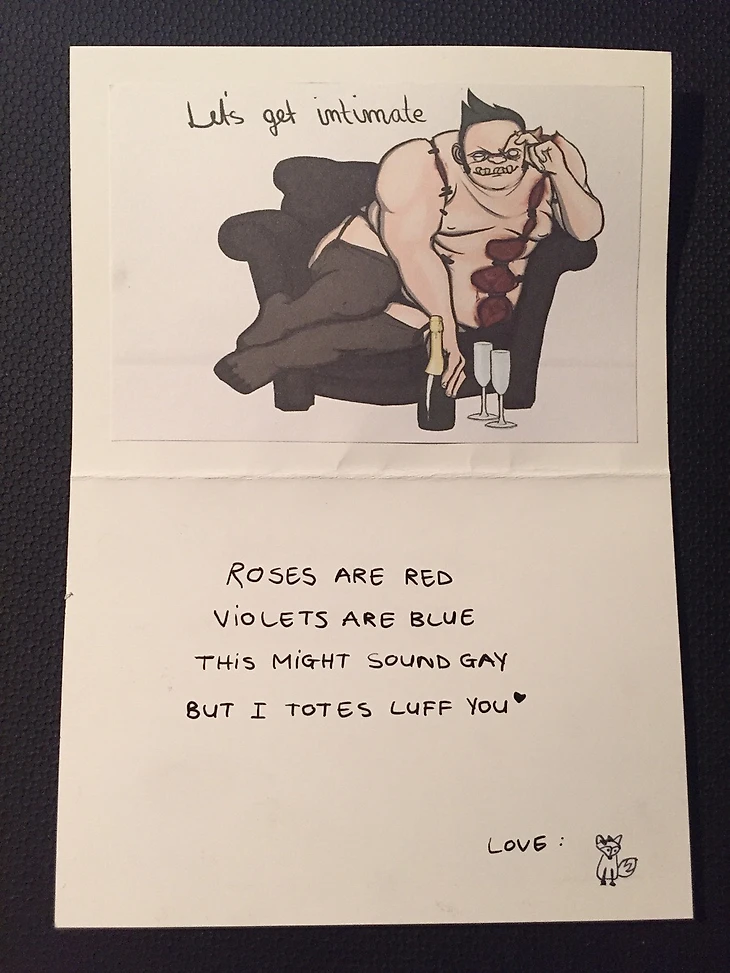 Let's get intimate
ROSES ARE RED
ViOLETS ARE BLUE
THiS MiGHT SOUND GAY
BUT I TOTES LUFF YOU♥
LOVE :